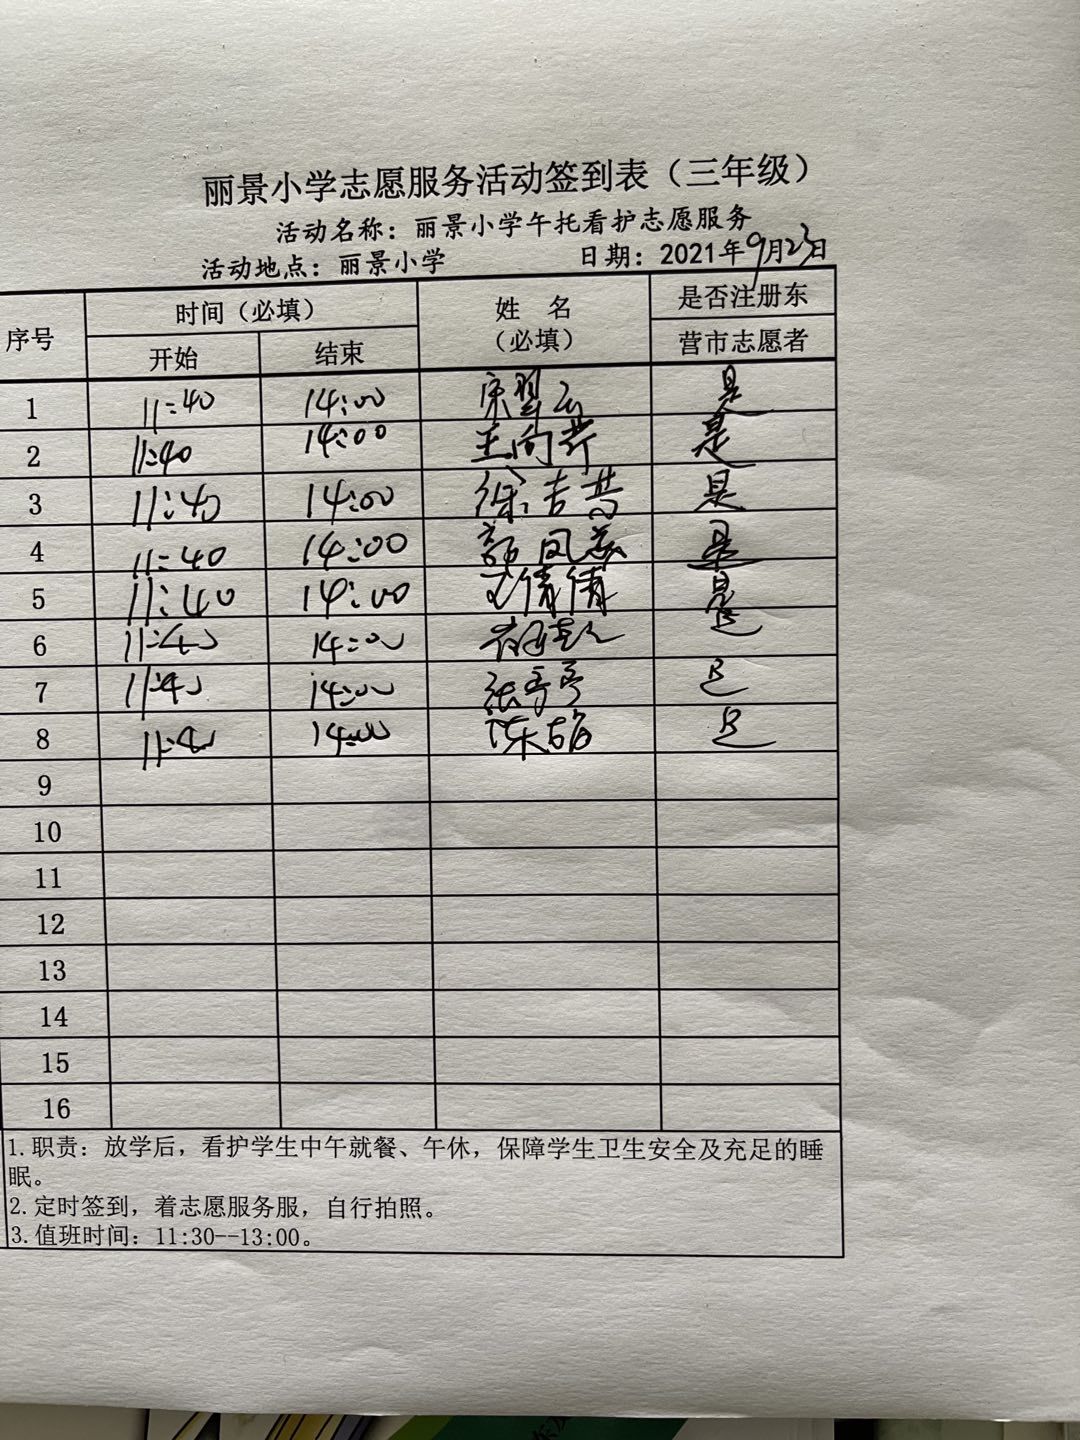 丽景小学志愿服务活动签到表（三年级）
活动名称：丽景小学午托看护志愿服务
活动地点：丽景小学 日期：2021年9月23日
序号 时间（必填） 姓 名（必填） 是否注册东营市志愿者
开始 结束
1 11:40 14:00 是
2 11:40 14:00 王向芹 是
3 11:40 14:00 徐吉 是
4 11:40 14:00 郭凤 是
5 11:40 14:00 王倩倩 是
6 11:40 14:00 是
7 11:40 14:00 张亭亭 是
8 11:40 14:00 陈 是
9
10
11
12
13
14
15
16
1.职责：放学后，看护学生中午就餐、午休，保障学生卫生安全及充足的睡
眠。
2.定时签到，着志愿服务服，自行拍照。
3.值班时间：11:30--13:00。